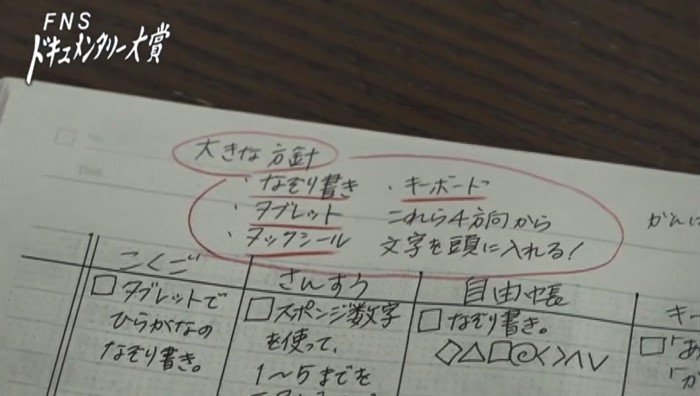 FNS
ドキュメンタリー大賞
大きな方針
・なぞり書き ・キーボード
・タブレット これら4方向から
・タックシール 文字を頭に入れる!
かんに
こくご
さんすう
自由帳
キー
□タブレットで
ひらがなの
なぞり書き。
□スポンジ数字
を使って、
1〜5までを
□なぞり書き。
◇△□<>∧∨
□「あ
「か